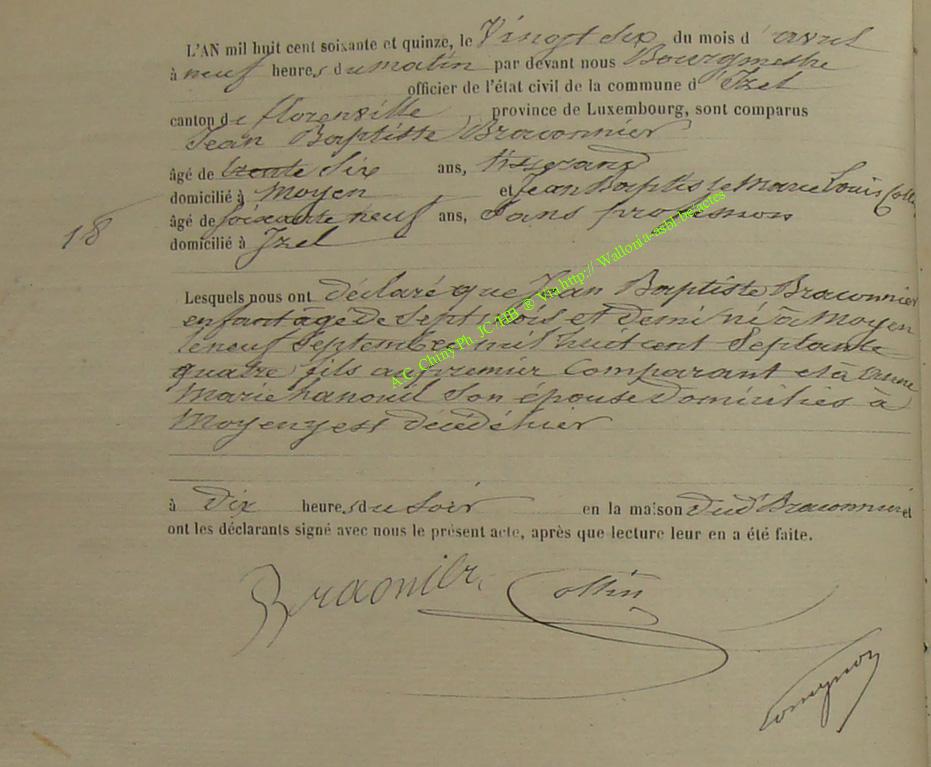 L'AN mil huit cent soixante et quinze, le Vingt Six du mois d'avril
à neuf heures du matin par devant nous Bourgmestre
officier de l'état civil de la commune d'Izel
canton de florenville province de Luxembourg, sont comparus
Jean Baptiste Braconnier
âgé de trente Six ans, tisserand
domicilié à Moyen et Jean Baptiste Marie Louis
18
âgé de soixante neuf ans, Sans profession
domicilié à Izel
Lesquels nous ont déclaré que Jean Baptiste Braconnier
enfant agé de Sept mois et demi né à Moyen
le neuf Septembre mil huit cent Septante
quatre, fils au premier Comparant et à
Marie hanouil Son épouse Domiciliés à
Moyen y est décédé hier
à dix heures du Soir en la maison dud' Braconnier et
ont les déclarants signé avec nous le présent acte, après que lecture leur en a été faite.
Collin
A.C. Chiny Ph JC-HB ® Via http:// Wallonia-asbl.be/actes